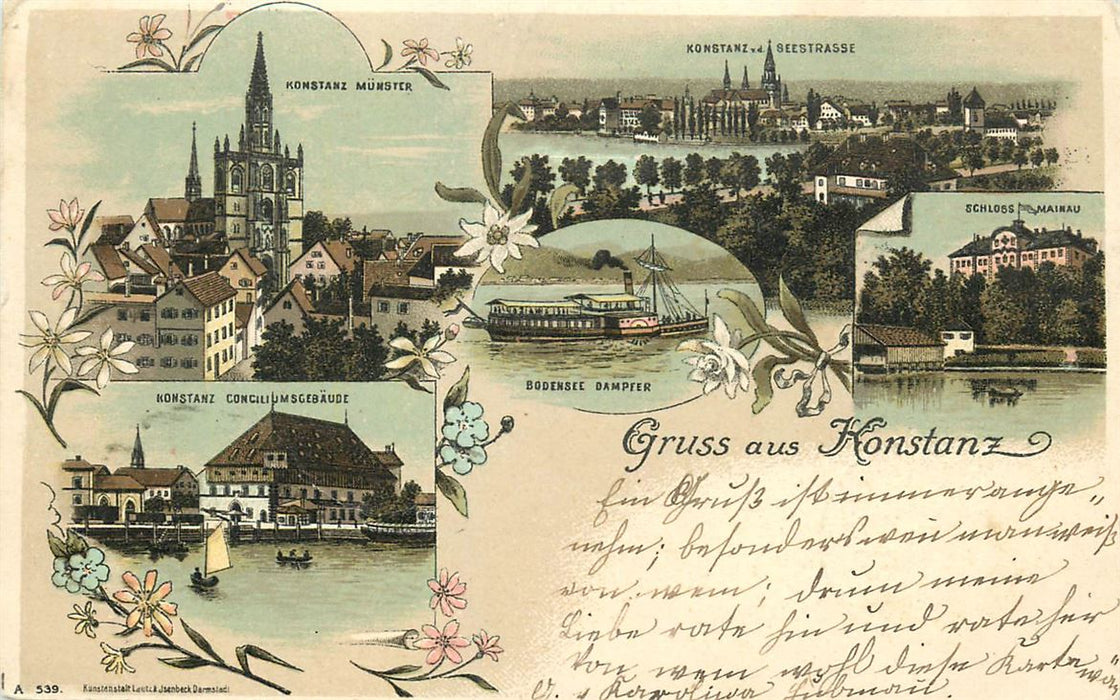 KONSTANZ MÜNSTER
KONSTANZ v.d. SEESTRASSE
SCHLOSS MAINAU
BODENSEE DAMPFER
KONSTANZ CONCILIUMSGEBÄUDE
Gruss aus Konstanz
Ein Gruß ist immer ange„
nehm; besonders wen man weiß
von wem; drum meine
Liebe rate hin und rate her
Von wem wohl diese Karte
Karoliwa
A 539. Kunstanstalt Lautz & Jsenbeck Darmstadt